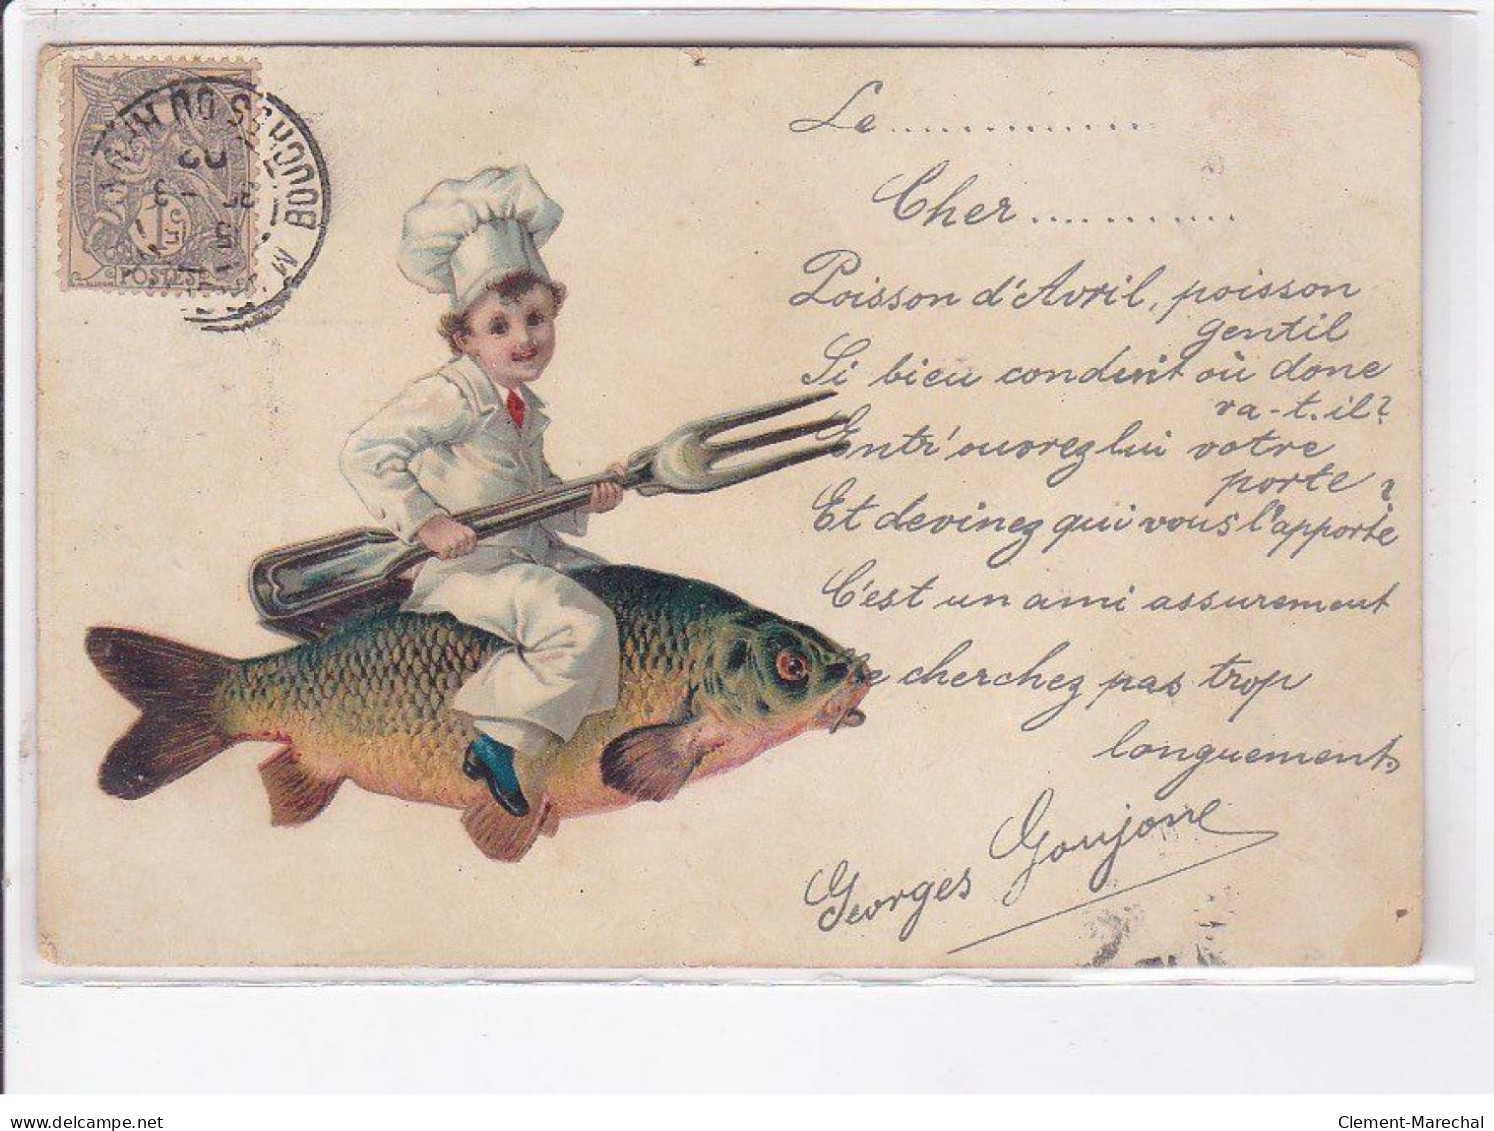 Le..............
Cher............
Poisson d'Avril, poisson
gentil
Si bien conduit où donc
va-t-il?
Entr'ouvrez lui votre
porte
Et devinez qui vous l'apporte?
C'est un ami assurement
Ne cherchez pas trop
longuement.
Georges Goujone
BOUCHES DU RHONE
03
5
1c
POSTES
delcampe.net
Clement-Marechal